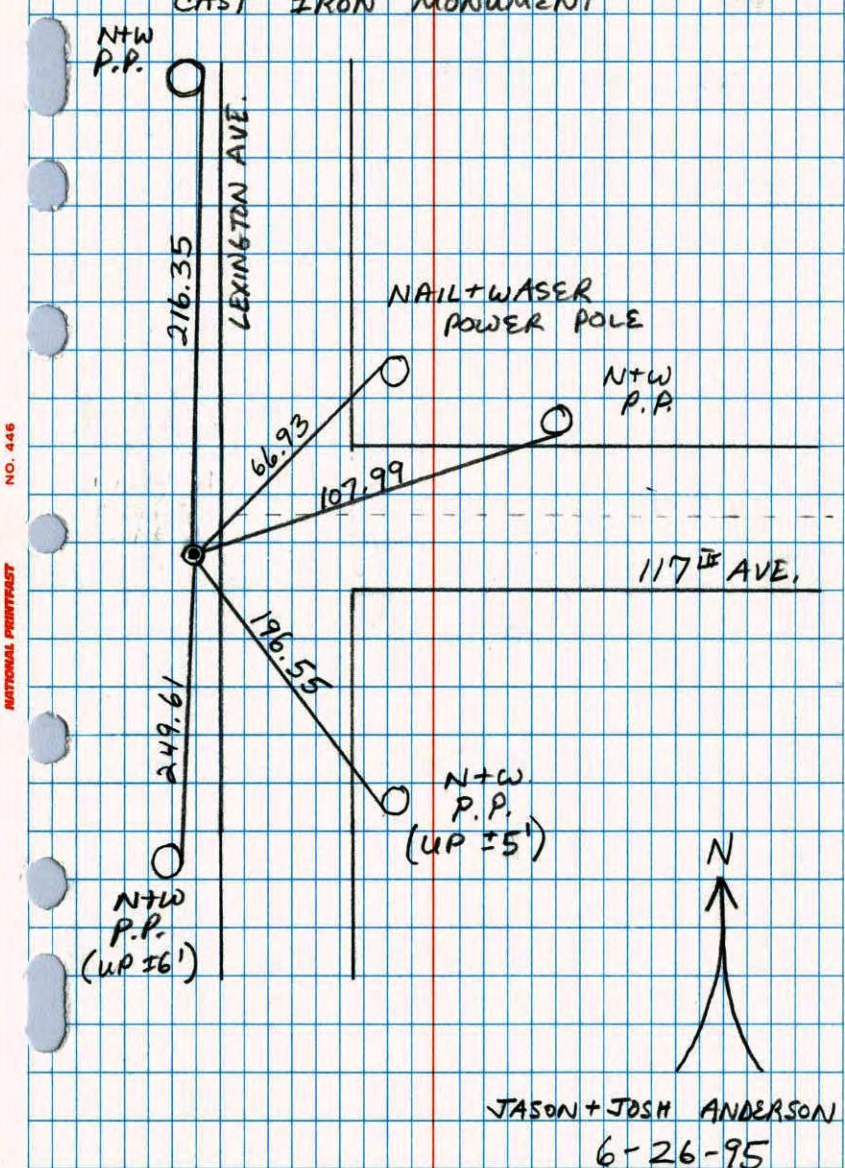 CAST IRON MONUMENT
N+W
P.P.
LEXINGTON AVE.
216.35
NAIL+WASER
POWER POLE
N+W
P.P.
66.93
107.99
117TH AVE.
196.55
249.61
N+W.
P.P.
(UP ±5')
N+W
P.P.
(UP ±6')
N
JASON + JOSH ANDERSON
6-26-95
NO. 446
NATIONAL PRINTFAST